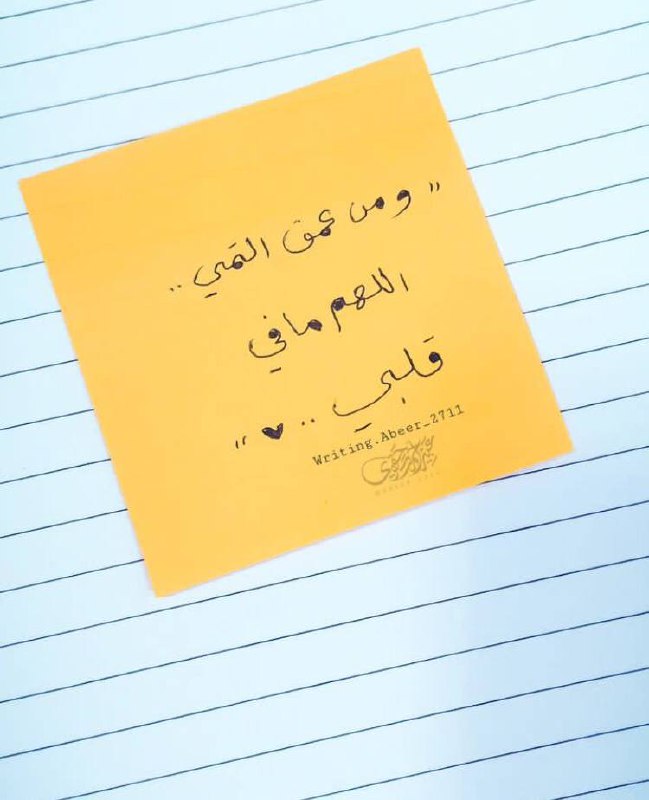 " ومن عمق التمني ..
اللهم مافي
قلبي .. ♥ "
Writing.Abeer_2711